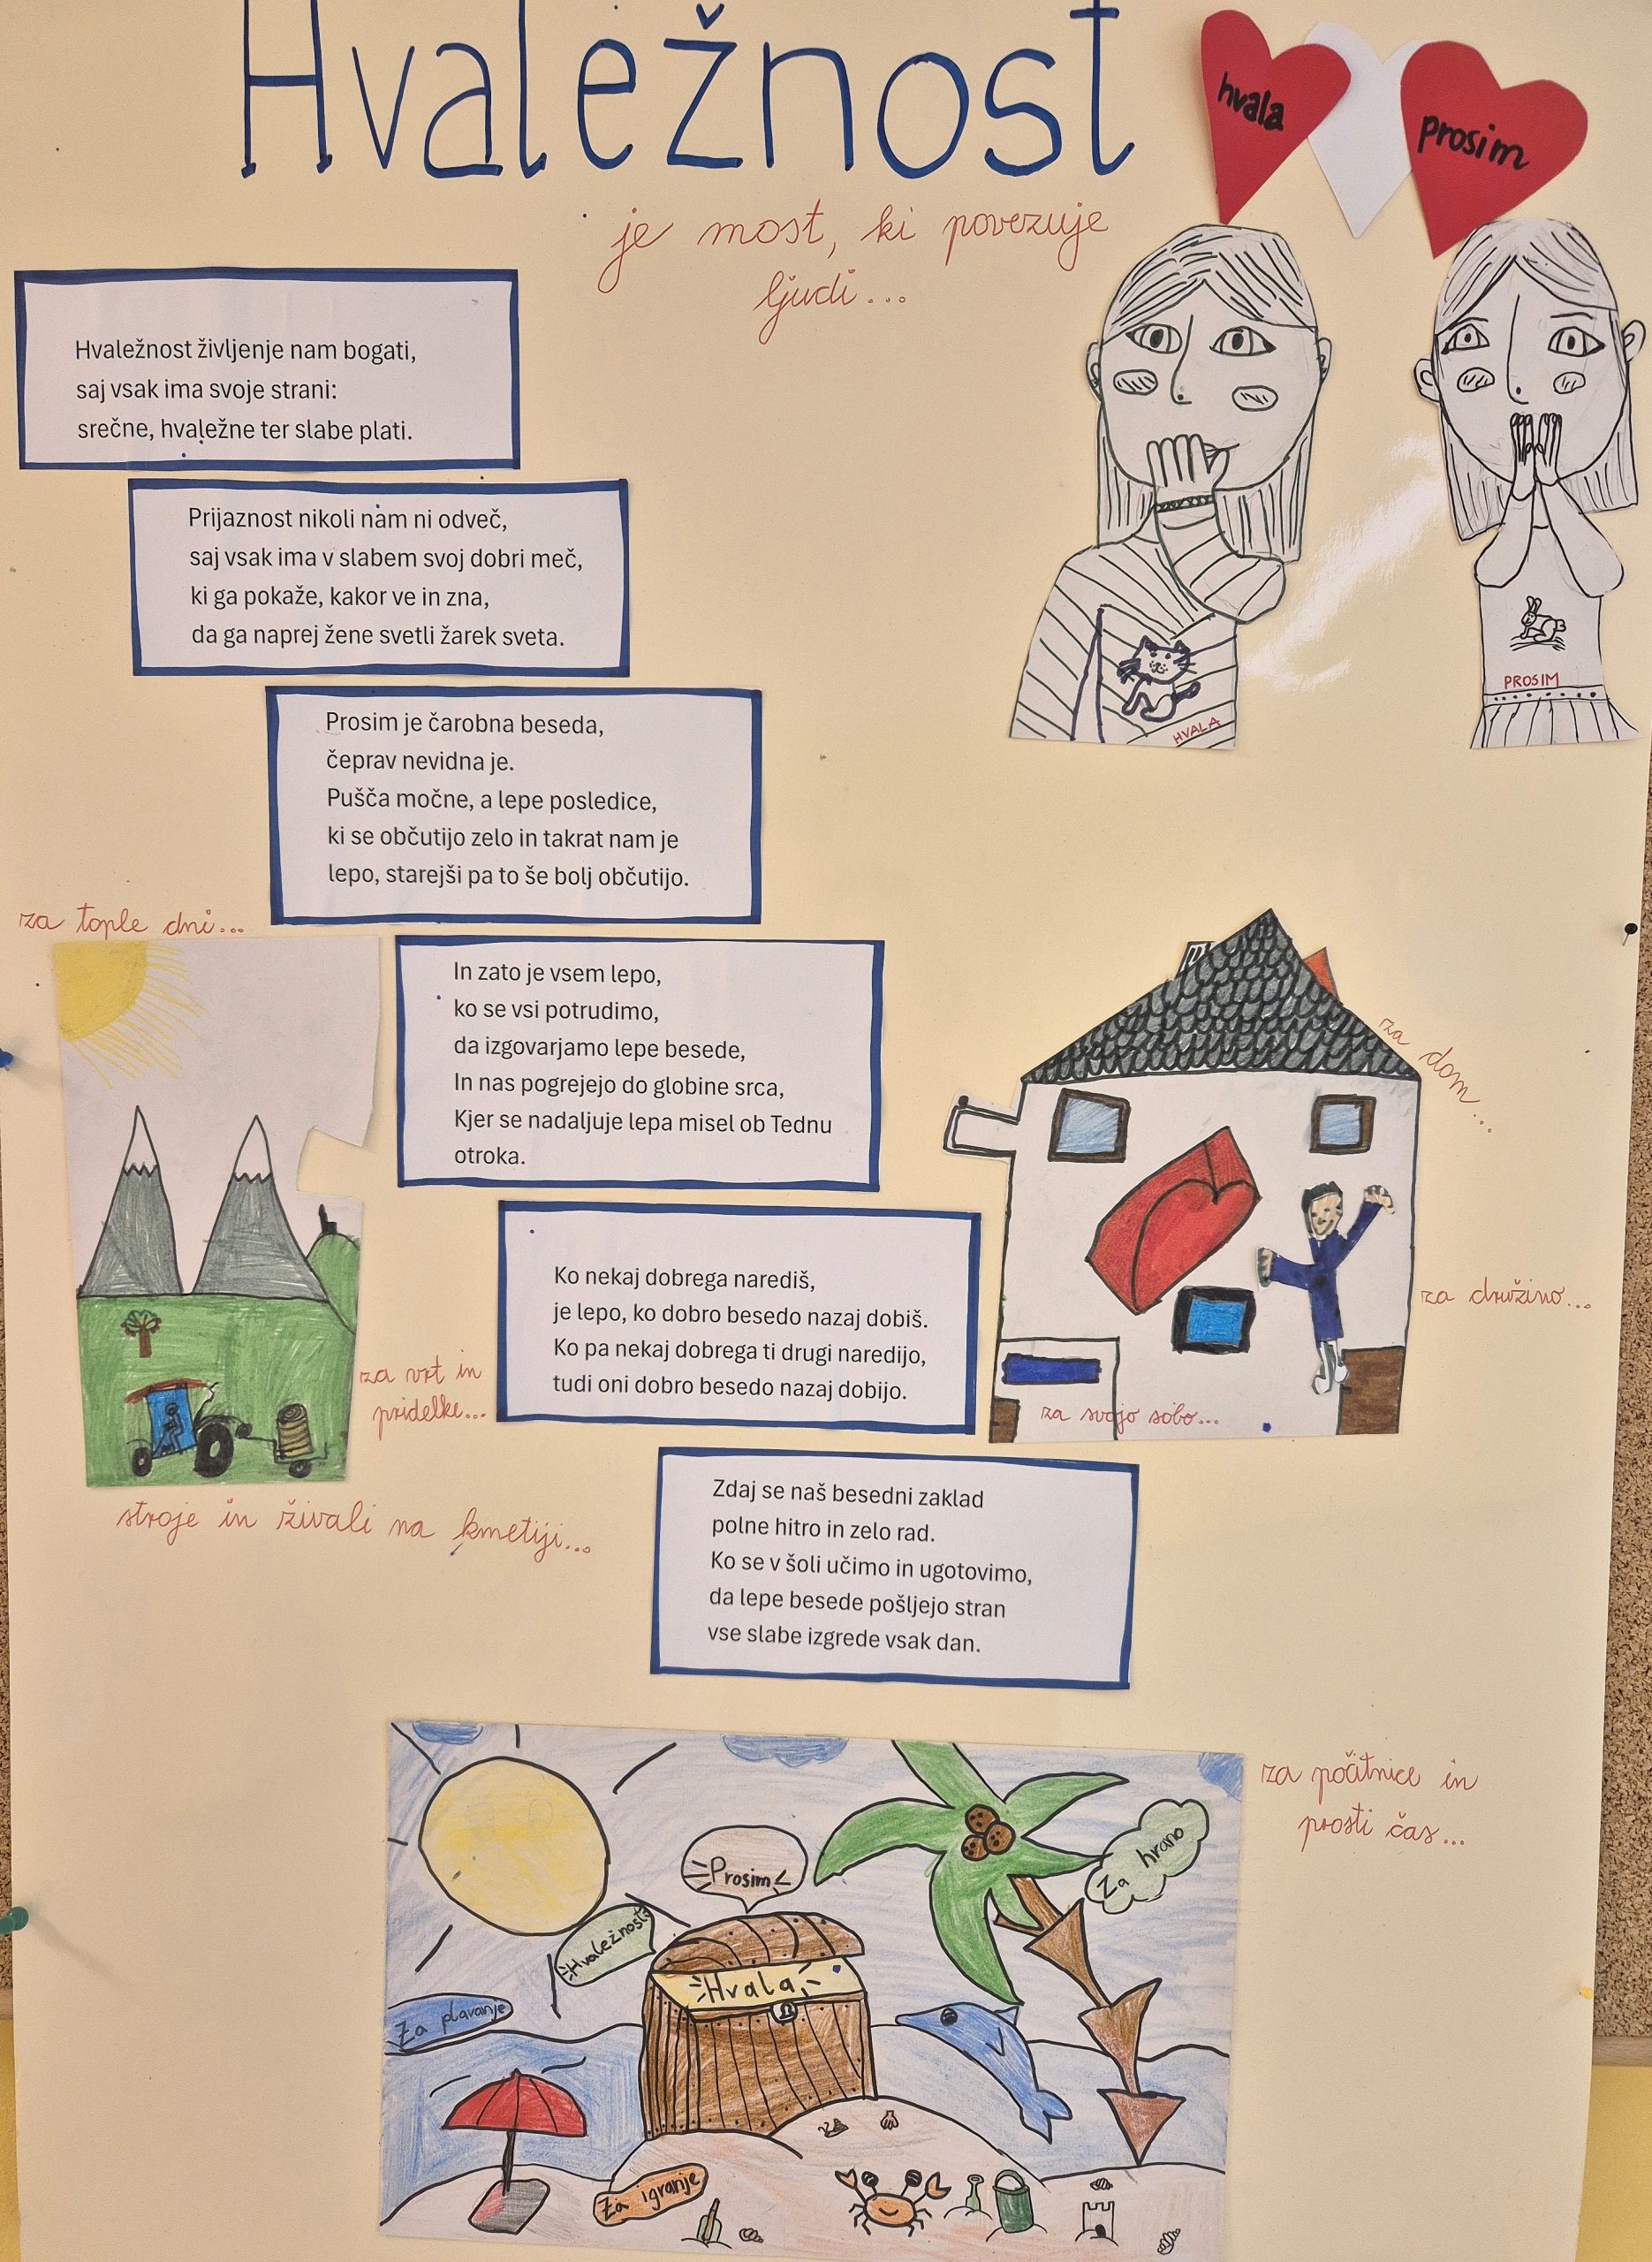 Hvaležnost
hvala
prosim
je most, ki povezuje
ljudi...
Hvaležnost življenje nam bogati,
saj vsak ima svoje strani:
srečne, hvaležne ter slabe plati.
Prijaznost nikoli nam ni odveč,
saj vsak ima v slabem svoj dobri meč,
ki ga pokaže, kakor ve in zna,
da ga naprej žene svetli žarek sveta.
HVALA
PROSIM
Prosim je čarobna beseda,
čeprav nevidna je.
Pušča močne, a lepe posledice,
ki se občutijo zelo in takrat nam je
lepo, starejši pa to še bolj občutijo.
za tople dni...
In zato je vsem lepo,
ko se vsi potrudimo,
da izgovarjamo lepe besede,
In nas pogrejejo do globine srca,
Kjer se nadaljuje lepa misel ob Tednu
otroka.
za dom...
za družino...
za svojo sobo...
Ko nekaj dobrega narediš,
je lepo, ko dobro besedo nazaj dobiš.
Ko pa nekaj dobrega ti drugi naredijo,
tudi oni dobro besedo nazaj dobijo.
za vrt in
pridelke...
stroje in živali na kmetiji...
Zdaj se naš besedni zaklad
polne hitro in zelo rad.
Ko se v šoli učimo in ugotovimo,
da lepe besede pošljejo stran
vse slabe izgrede vsak dan.
za počitnice in
prosti čas...
Prosim
Za hrano
Hvaležnost
Hvala
Za plavanje
Za igranje